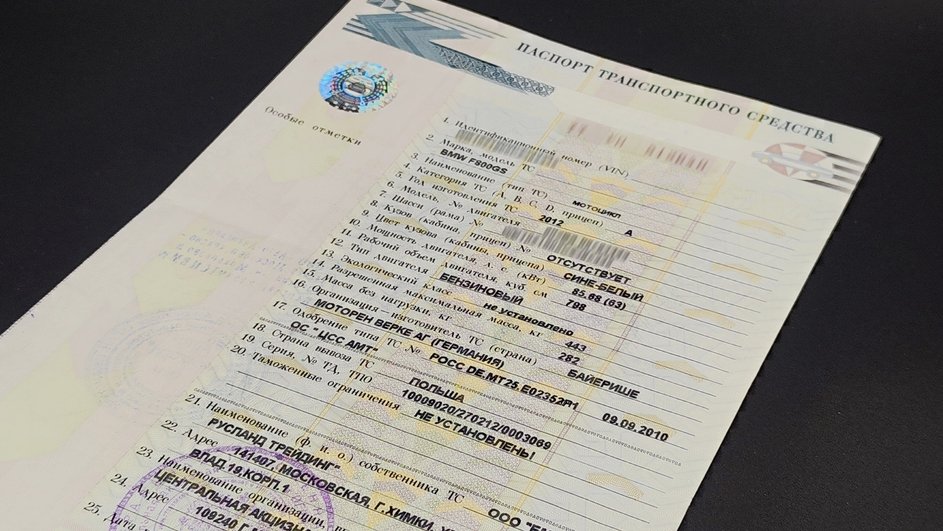 ПАСПОРТ ТРАНСПОРТНОГО СРЕДСТВА
Особые отметки
1. Идентификационный номер (VIN)
2. Марка, модель ТС
BMW F800GS
3. Наименование (тип ТС) МОТОЦИКЛ
4. Категория ТС (A, B, C, D, прицеп) A
5. Год изготовления ТС 2012
6. Модель, № двигателя
7. Шасси (рама) №
8. Кузов (кабина, прицеп) № ОТСУТСТВУЕТ
9. Цвет кузова (кабины, прицепа) СИНЕ-БЕЛЫЙ
10. Мощность двигателя, л. с. (кВт) 85.68 (63)
11. Рабочий объем двигателя, куб. см 798
12. Тип двигателя БЕНЗИНОВЫЙ
13. Экологический класс не установлено
14. Разрешенная максимальная масса, кг 443
15. Масса без нагрузки, кг 282
16. Организация изготовитель ТС (страна) БАЙЕРИШЕ
МОТОРЕН ВЕРКЕ АГ (ГЕРМАНИЯ)
17. Одобрение типа ТС № РОСС DE.MT25.E02352P1 09.09.2010
ОС "ЦСС АМТ"
18. Страна вывоза ТС ПОЛЬША
19. Серия, № ТД, ТПО 10009020/270212/0003069
20. Таможенные ограничения НЕ УСТАНОВЛЕНЫ
21. Наименование (ф. и. о.) собственника ТС ООО
РУСЛАНД ТРЕЙДИНГ"
22. Адрес 141407, МОСКОВСКАЯ, Г.ХИМКИ,
ВЛАД.19 КОРП.1
23. Наименование организации,
ЦЕНТРАЛЬНАЯ АКЦИЗНАЯ
24. Адрес 109240
25. Дата